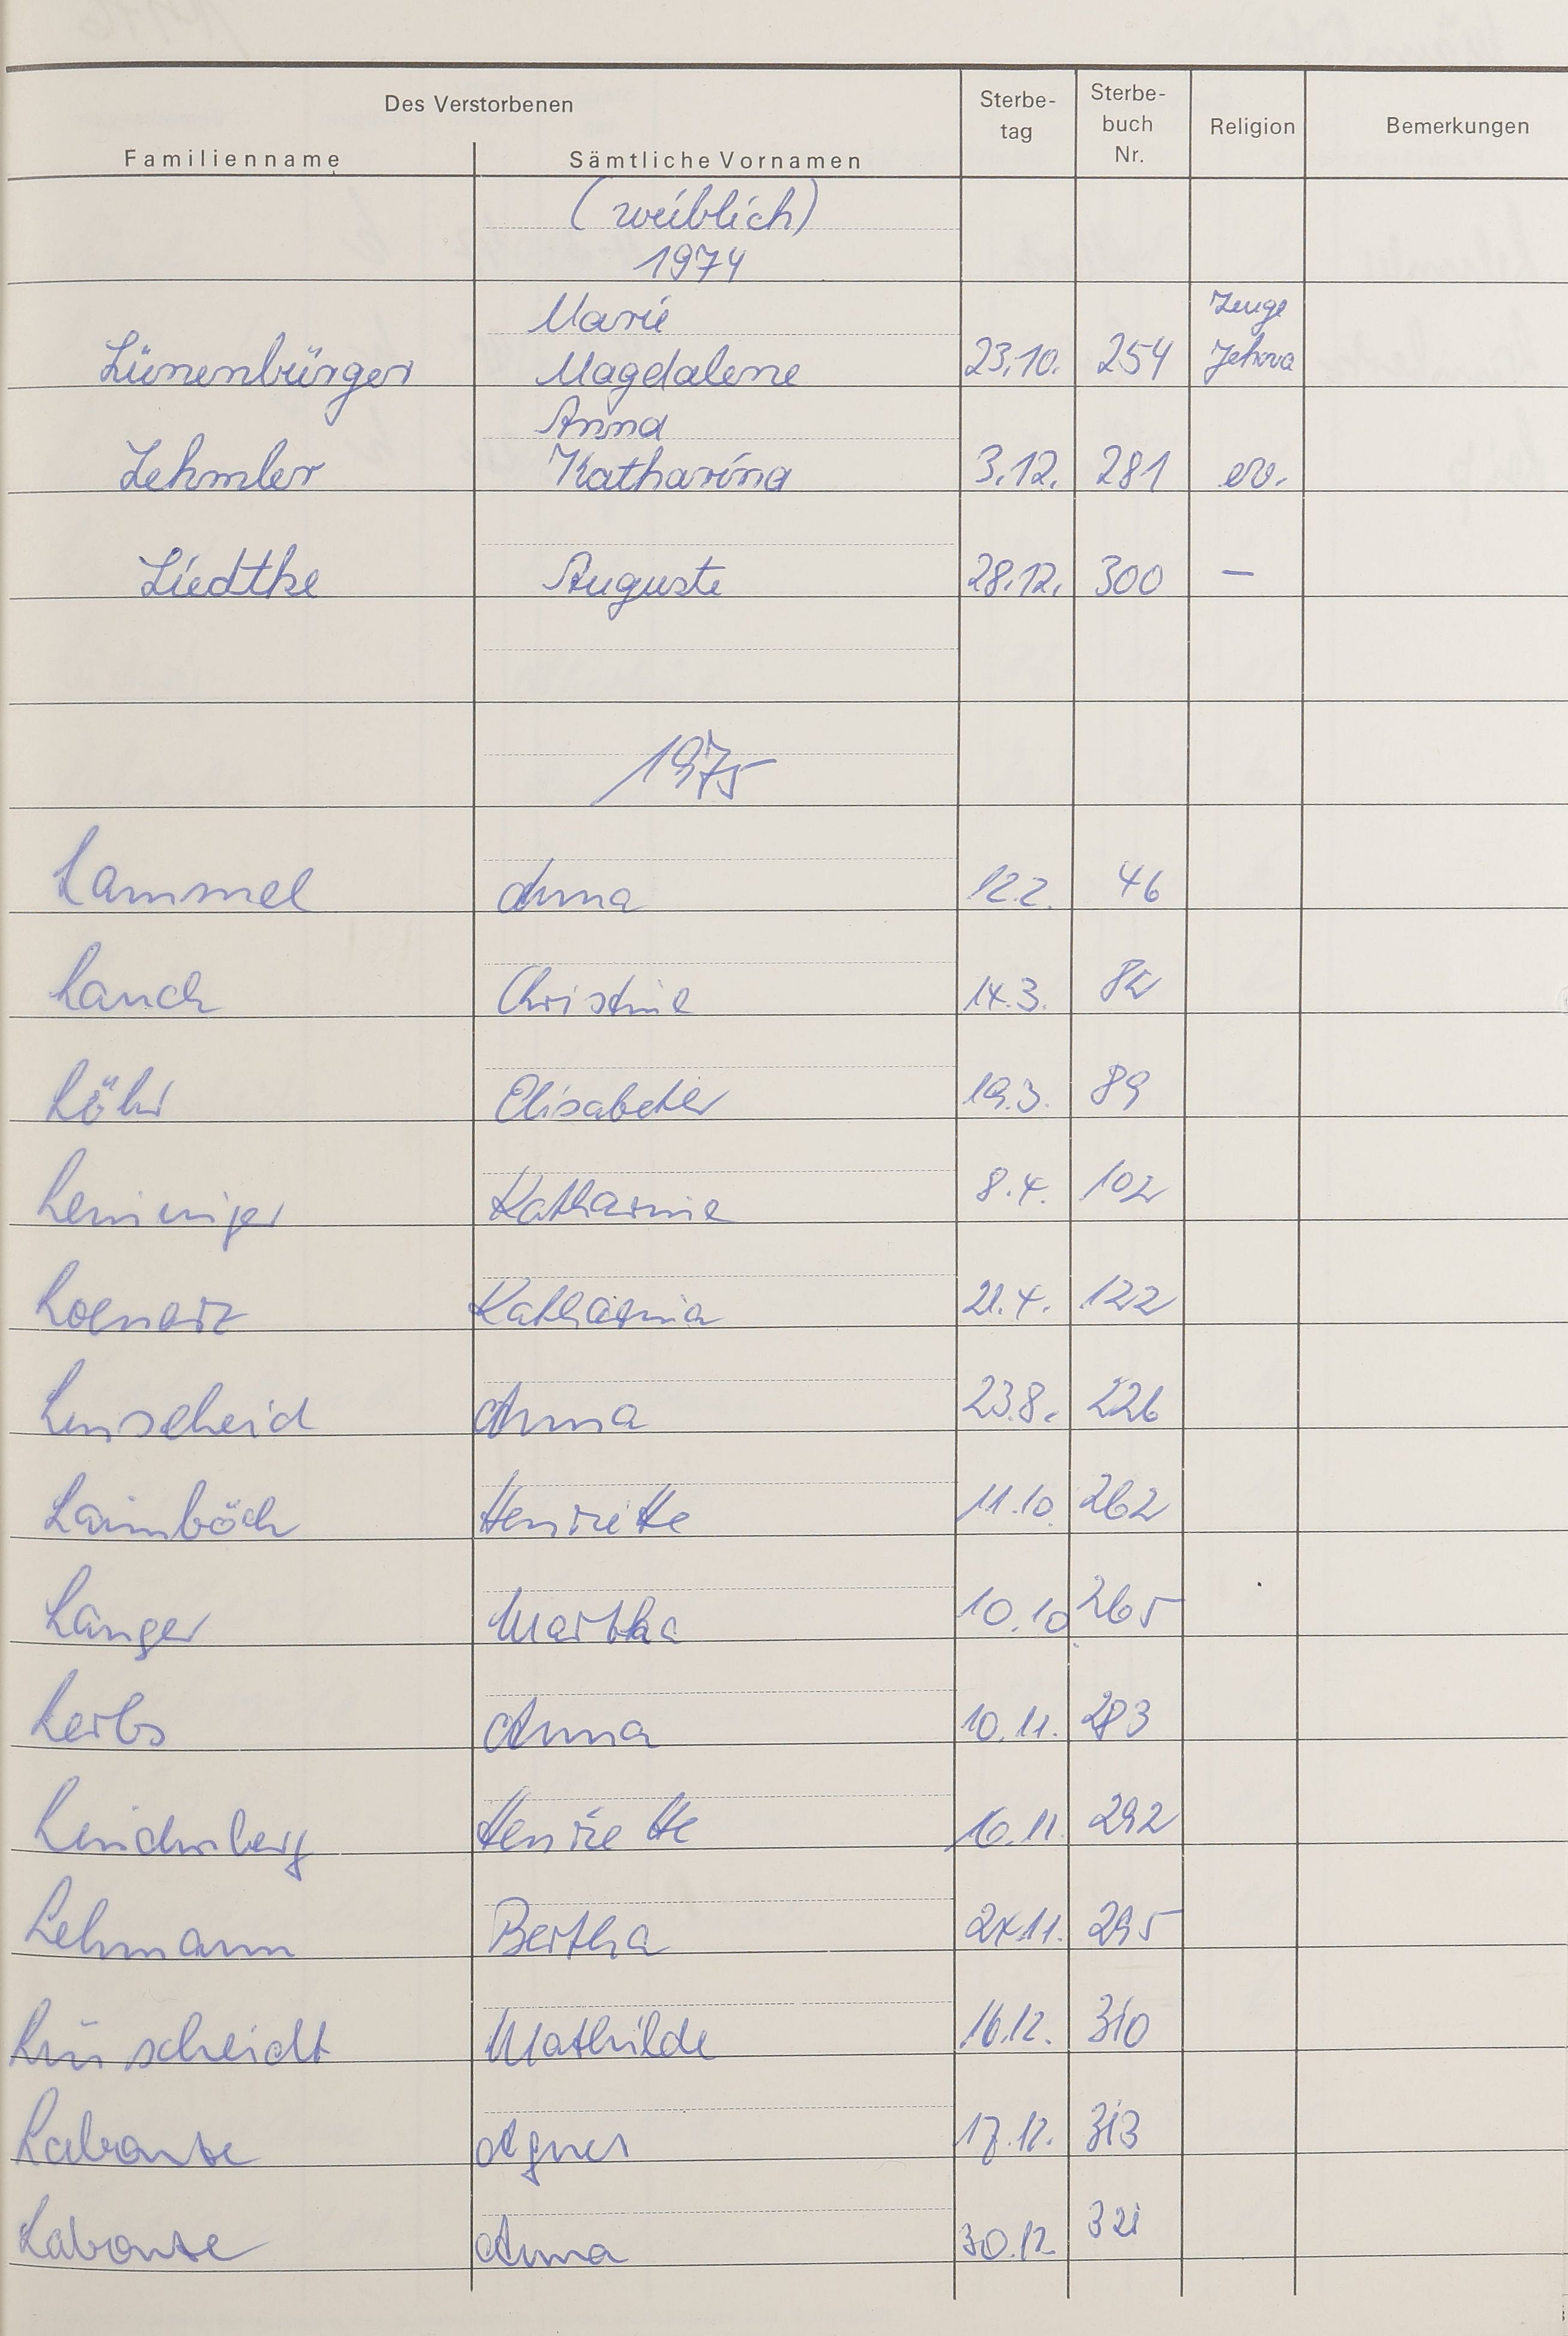 Des Verstorbenen
Familienname Sämtliche Vornamen Sterbe-tag Sterbe-buch Nr. Religion Bemerkungen
(weiblich)
1974
Marie Zeuge
Lünenbürger Magdalene 23.10. 254 Jehova
Anna
Lehmler Katharina 3.12. 281 ev.
Liedtke Auguste 28.12. 300 —
1975
Lammel Anna 12.2. 46
Lauch Christine 14.3.
Löhr Elisabeth 19.3. 89
Leininger Katharine 8.4. 102
Loenarz Katharina 21.4. 122
Linscheid Anna 23.8. 226
Laimböck Henriette 11.10. 262
Langer Martha 10.10. 265
Lerbs Anna 10.11. 283
Henriette 16.11. 292
Lehmann Bertha 24.11. 295
Linscheidt Mathilde 16.12. 310
Labonte Agnes 17.12. 313
Labonte Anna 30.12. 321